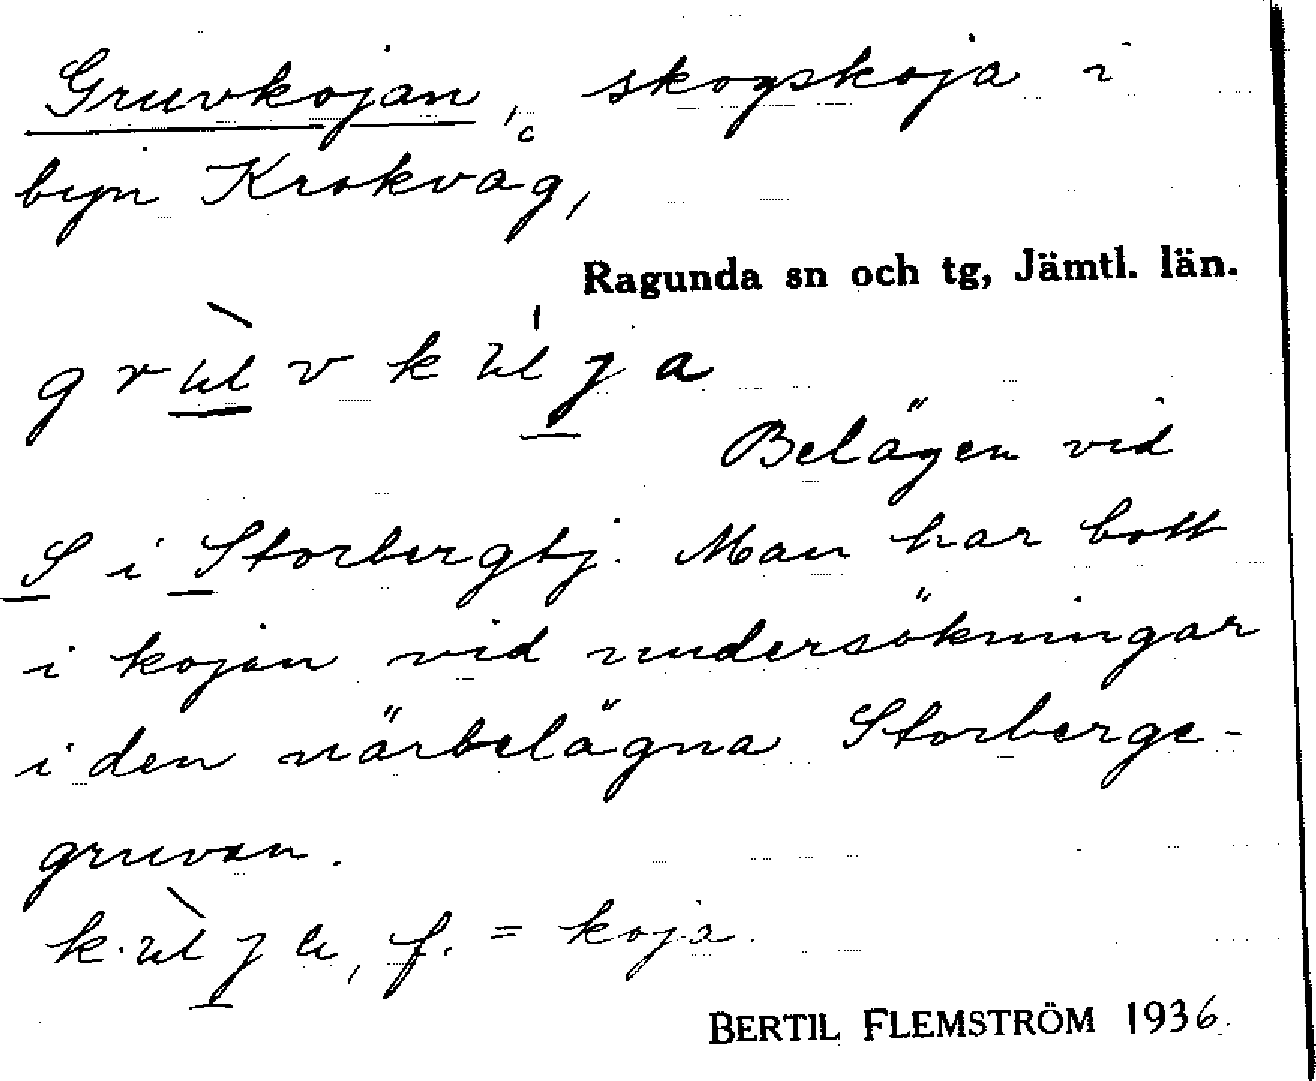 Gruvkojan, skogskoja i
byn Krokvåg,
Ragunda sn och tg, Jämtl. län.
Belägen vid
S i Storbergtj. Man har bott
i kojan vid undersökningar
i den närbelägna Storberge-
gruvan.
f. = koja.
BERTIL FLEMSTRÖM 1936.